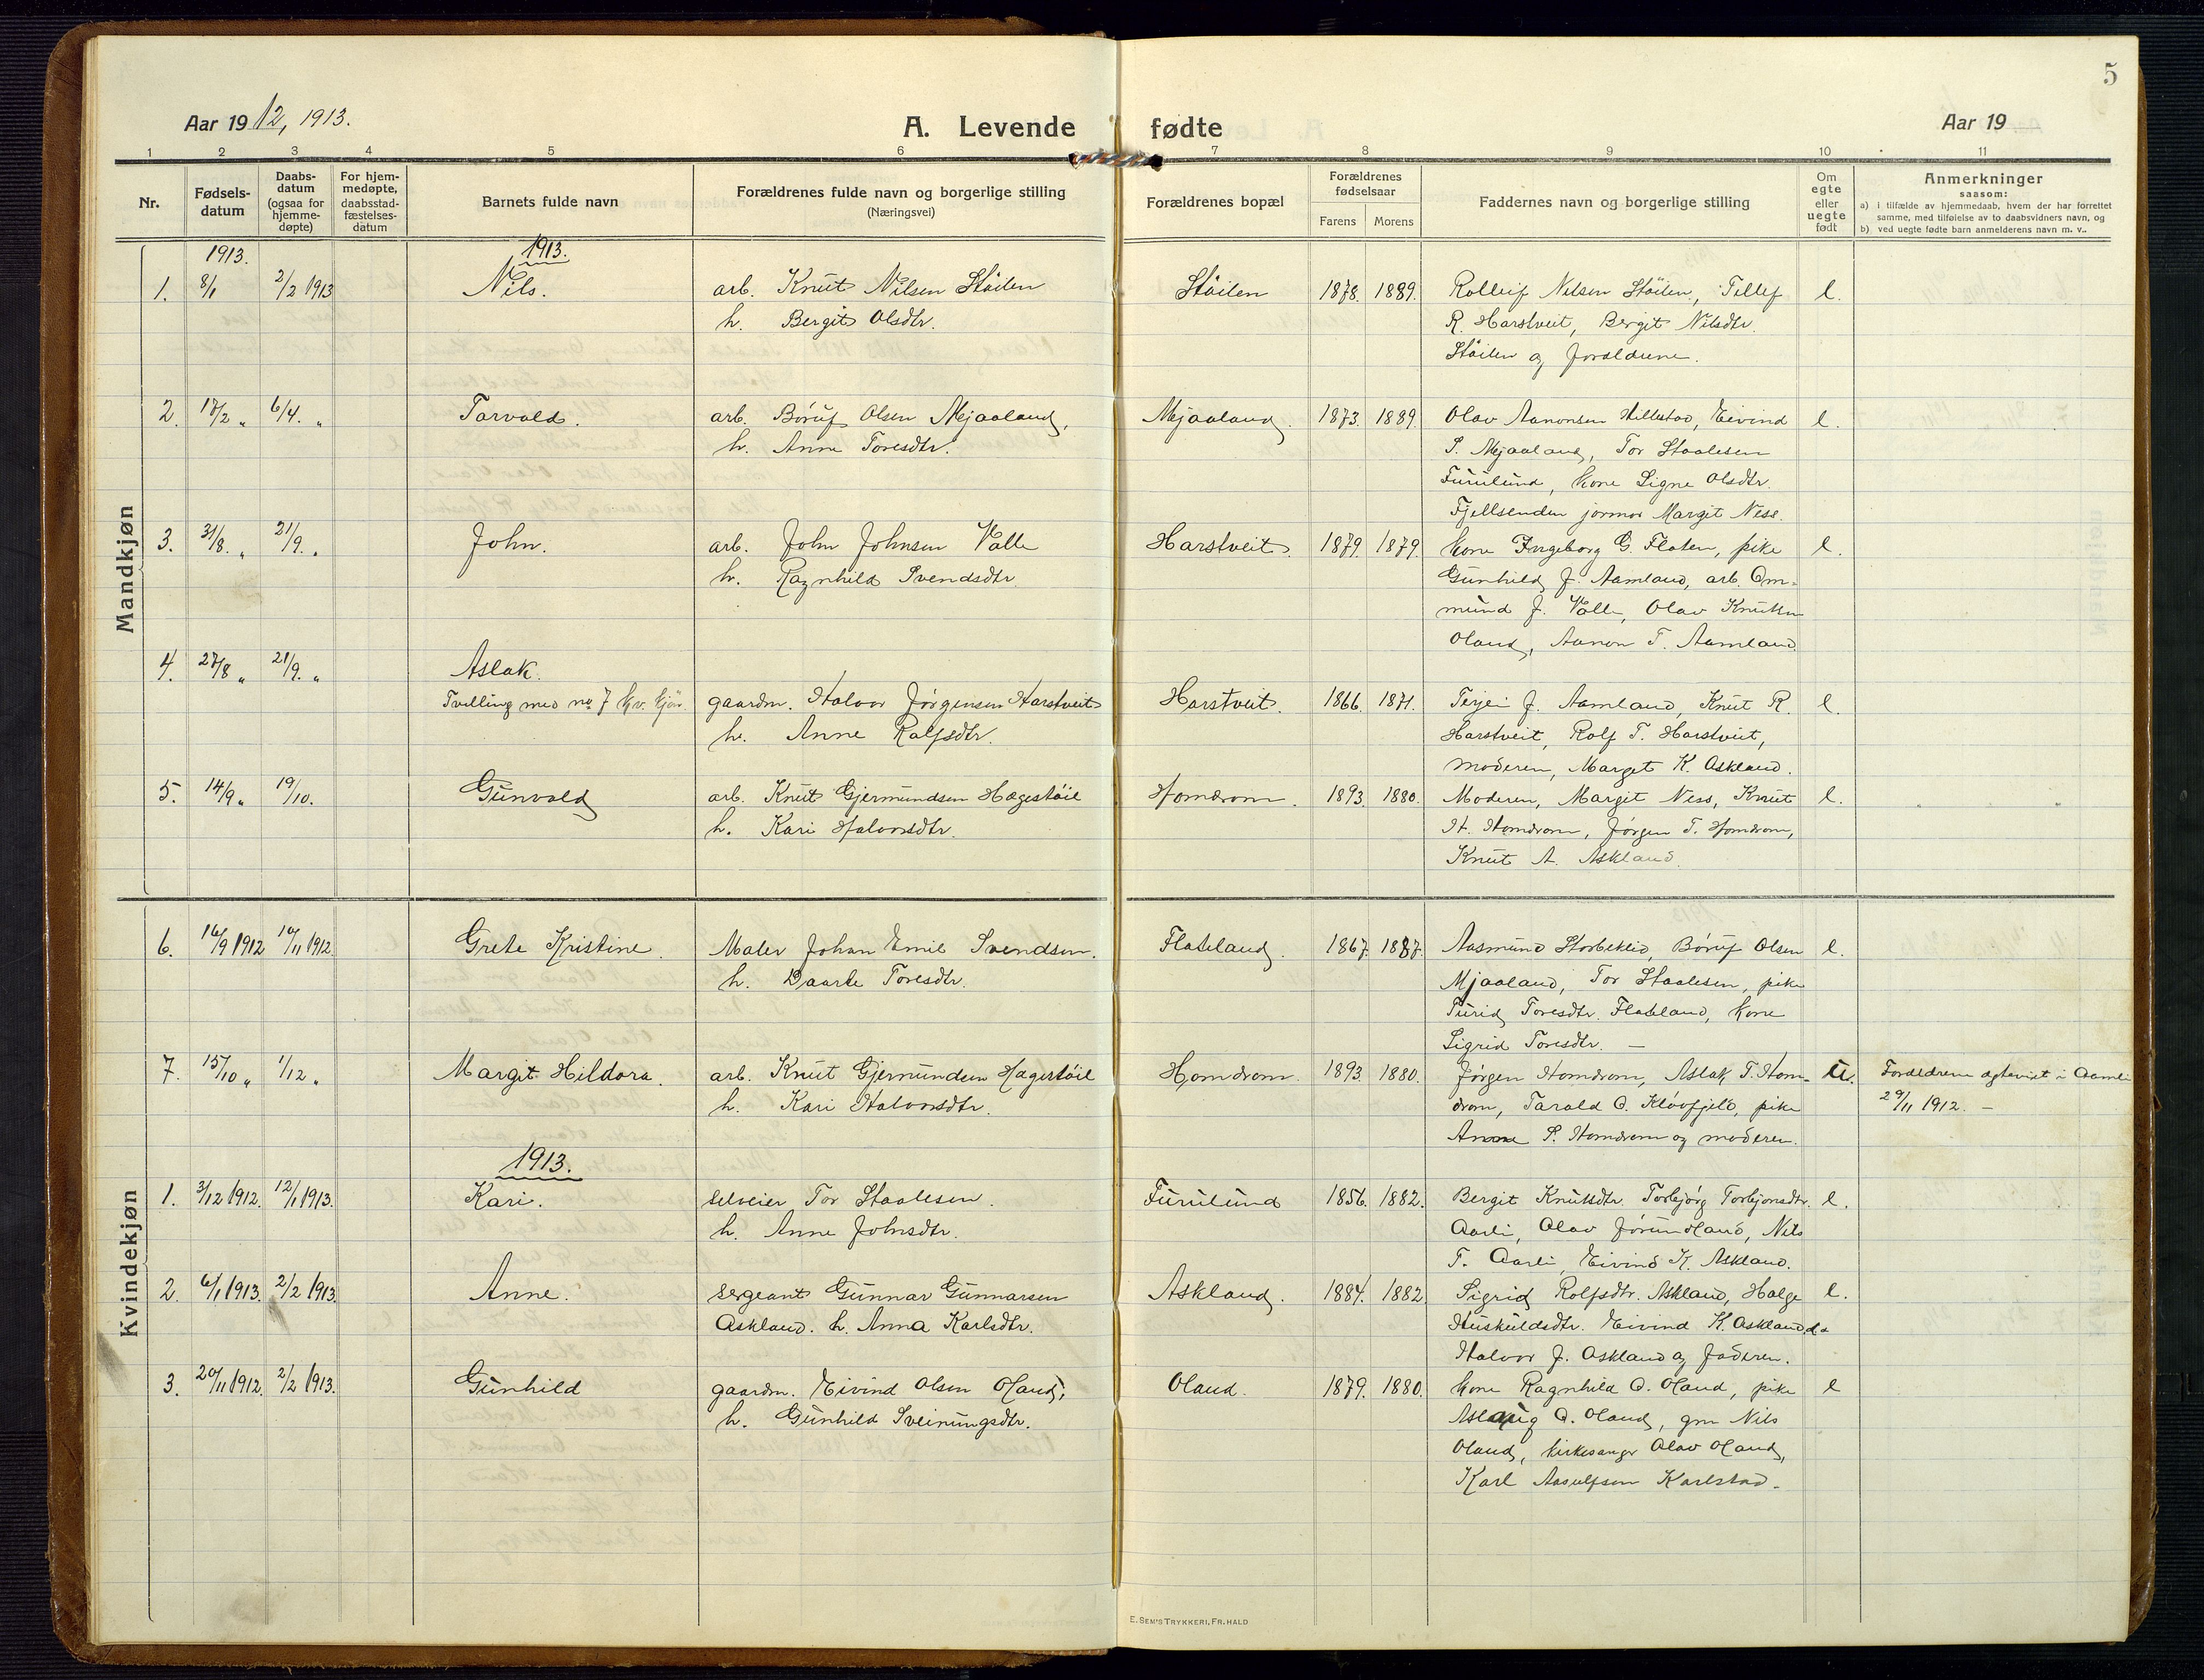 5
Aar 1912, 1913.
A. Levende fødte
Aar 19
1 2 3 4 5 6 7 8 9 10 11
Nr.
Fødsels-
datum
Daabs-
datum
(ogsaa for
hjemme-
døpte)
For hjem-
medøpte,
daabsstad-
fæstelses-
datum
Barnets fulde navn
Forældrenes fulde navn og borgerlige stilling
(Næringsvei)
Forældrenes bopæl
Forældrenes
fødselsaar
Farens Morens
Faddernes navn og borgerlige stilling
Om
egte
eller
uegte
født
Anmerkninger
saasom:
a) i tilfælde av hjemmedaab, hvem der har forrettet
samme, med tilføielse av to daabsvidners navn, og
b) ved uegte fødte barn anmelderens navn m. v..
Mandkjøn
1913. 1913.
1. 8/1 2/2 1913 Nils. arb. Knut Nilsen Stöilen Stöilen 1878. 1889. Rolleif Nilsen Stöilen, Tellef e.
h. Bergit Olsdtr. R. Harstveit, Bergit Nilsdtr.
Stöilen og foraldrene.
2. 17/2 " 6/4. " Tarvald. arb. Böruf Olsen Mjaaland, Mjaaland. 1873. 1889. Olav Aanonsen Hillestad, Eivind e.
h. Anne Toresdtr. S. Mjaaland, Tor Staalesen
Furulund, kone Signe Olsdtr.
Fjellsenden jormor Margit Ness.
3. 31/8. " 21/9. " John. arb. John Johnsen Valle Harstveit. 1879. 1879. kone Ingeborg G. Flaten, pike e.
h. Ragnhild Svendsdtr. Gunhild J. Aamland, arb. Om-
mund J. Valle, Olav Knutsen
Oland, Aanon T. Aamland.
4. 27/8 " 21/9. " Aslak.
Tvilling med no 7 kv. kjön. gaardm. Halvor Jørgensen Harstveit Harstveit. 1866. 1871. Terjei J. Aamland, Knut R. e.
h. Anne Rolfsdtr. Harstveit, Rolf T. Harstveit,
moderen, Marget K. Askland.
5. 14/9 " 19/10. Gunvald arb. Knut Gjermundsen Hægestöil Homdrom. 1893. 1880. Moderen, Margit Ness, Knut e.
h. Kari Halvorsdtr. H. Homdrom, Jørgen T. Homdrom,
Knut A. Askland.
Kvindekjøn
6. 16/9 1912 10/11 1912. Grete Kristine. Maler Johan Emil Svendsen. Flateland. 1867. 1887. Aasmund Storbeklid, Böruf Olsen e.
h. Daarte Toresdtr. Mjaaland, Tor Staalesen, pike
Turid Toresdtr. Flateland, kone
Sigrid Toresdtr. —
7. 15/10 " 1/12 " Margit Hildora. arb. Knut Gjermundsen Hægestöil Homdrom. 1893. 1880. Jørgen Homdrom, Aslak T. Hom- U. Foraldrene egteviet i Aamli
h. Kari Halvorsdtr. drom, Tarald O. Klövfjeld, pike 29/11 1912. —
Anne S. Homdrom og moderen.
1913.
1. 3/12 1912. 12/1 1913. Kari. selveier Tor Staalesen. Furulund 1856. 1882. Bergit Knutsdtr. Torbjørg Torbjonsdtr. e.
h. Anne Johnsdtr. Aarli, Olav Jörundland, Nils
T. Aarli, Eivind K. Askland.
2. 6/1 1913. 2/2 1913. Anne. sergeant Gunnar Gunnarsen Askland. 1884. 1882. Sigrid Rolfsdtr. Askland, Halge e.
Askland. h. Anna Karlsdtr. Huskuldsdtr. Eivind K. Askland
Halvor J. Askland og faderen.
3. 20/11 1912. 2/2 1913. Gunhild gaardm. Eivind Olsen Oland, Oland. 1879. 1880. kone Ragnhild O. Oland, pike e
h. Gunhild Sveinungsdtr. Aslaug O. Oland, gm Nils
Oland, kirkesanger Olav Oland,
Karl Aasulfsen Karlstad.
E. SEM'S TRYKKERI, FR. HALD